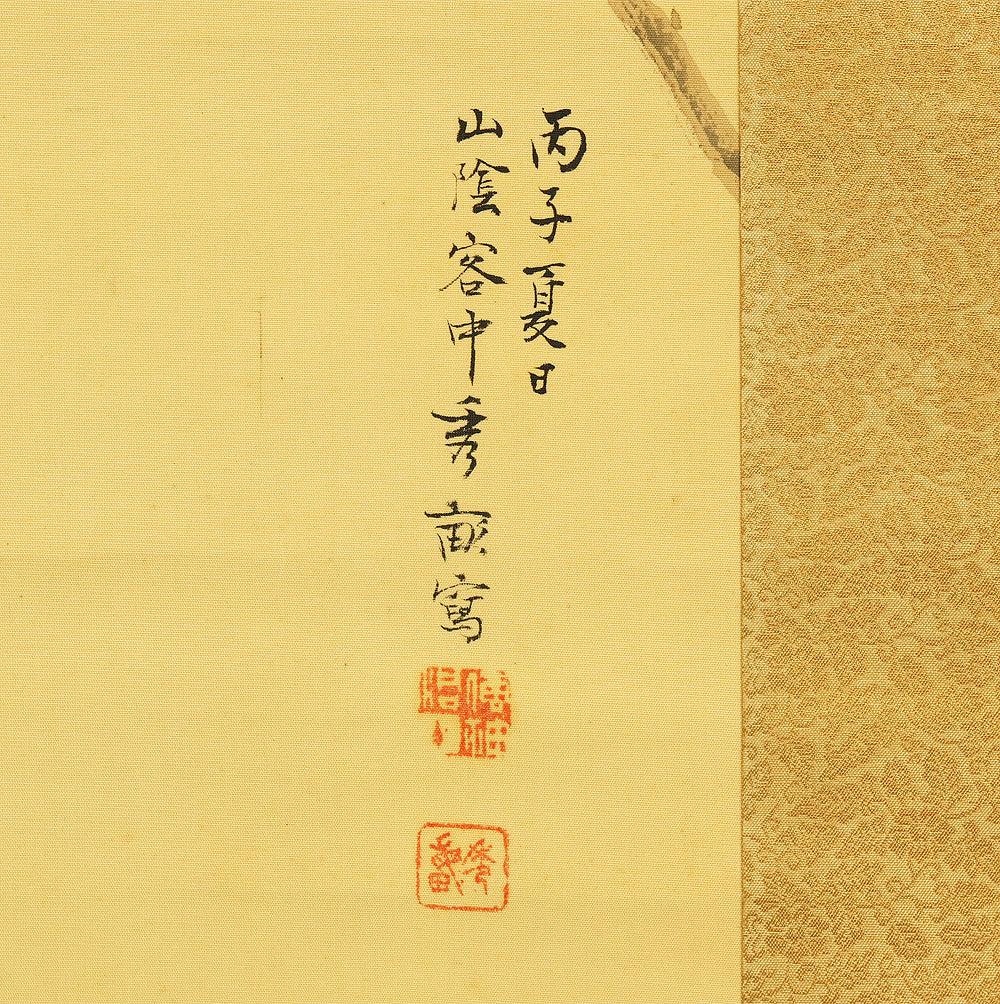 丙子夏日
山陰客中秀畝寫
秀畝